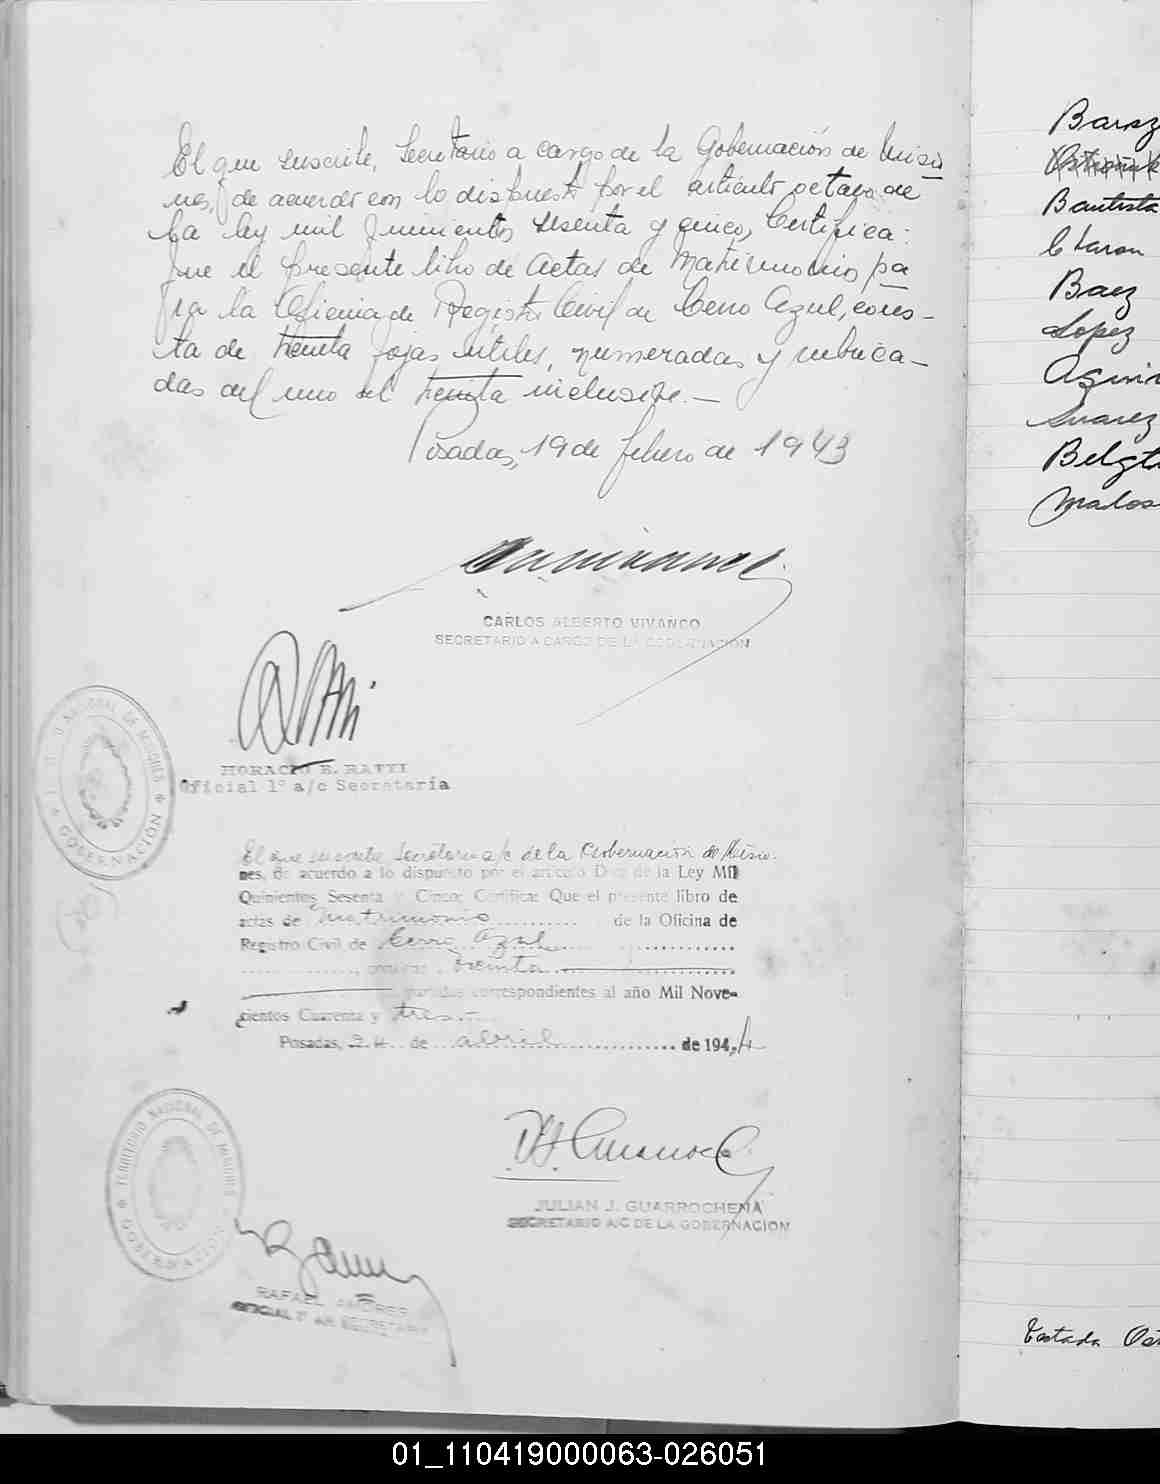 El que suscribe, Secretario a cargo de la Gobernación de Misio
nes, de acuerdo con lo dispuesto por el artículo octavo de
la ley mil quinientos sesenta y cinco, Certifica:
que el presente libro de actas de matrimonio pa
ra la Oficina de Registro Civil de Cerro Azul, cons-
ta de treinta fojas útiles, numeradas y rubrica-
das del uno al treinta inclusive.—
Posadas, 19 de febrero de 1943
CARLOS ALBERTO VIVANCO
SECRETARIO A CARGO DE LA GOBERNACION
HORACIO E. RATTI
Oficial 1º a/c Secretaría
NACIONAL DE MISIONES
GOBERNACIÓN
El que suscribe, Secretario a/c de la Gobernación de Misio-
nes, de acuerdo a lo dispuesto por el artículo Diez de la Ley Mil
Quinientos Sesenta y Cinco; Certifica: Que el presente libro de
actas de matrimonio de la Oficina de
Registro Civil de Cerro Azul
treinta
partidas correspondientes al año Mil Nove-
cientos Cuarenta y tres.—
Posadas, 24 de abril de 1944
TERRITORIO NACIONAL DE MISIONES
GOBERNACIÓN
JULIAN J. GUARROCHENA
SECRETARIO A/C DE LA GOBERNACION
RAFAEL AMORES
OFICIAL
SECRETARIA
Baraz
Bautista
Charon
Baez
Lopez
Aguir
Suarez
Matos
Testada
01_110419000063-026051